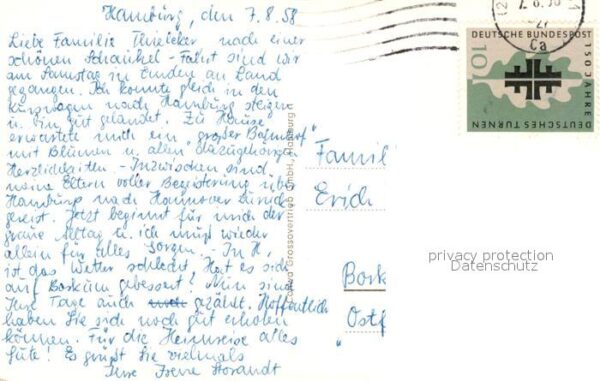 Hamburg, den 7.8.58
Liebe Familie Thielcker nach einer
schönen Schaukel-Fahrt sind wir
am Samstag in Emden an Land
gegangen. Ich konnte gleich in den
Kurswagen nach Hamburg steigen
u. bin gut gelandet. Zu Hause
erwartete mich ein "großer Bahnhof"
mit Blumen u. allen dazugehörigen
Herzlichkeiten. - Inzwischen sind
meine Eltern voller Begeisterung über
Hamburg nach Hannover zurück
gereist. Jetzt beginnt für mich der
graue Alltag u. ich muß wieder
allein für alles Sorgen. - In H.
ist das Wetter schlecht, hat es sich
auf Borkum gebessert? Nun sind
Ihre Tage auch gezählt. Hoffentlich
haben Sie sich noch gut erholen
können. Für die Heimreise alles
Gute! Es grüßt Sie vielmals
Ihre Irene Horandt
Grossovertrieb GmbH, Hamburg
Famil
Erich
Bork
Ostf
7. 8. 58
Ca
DEUTSCHE BUNDESPOST
10
150 JAHRE
DEUTSCHES TURNEN
privacy protection
Datenschutz